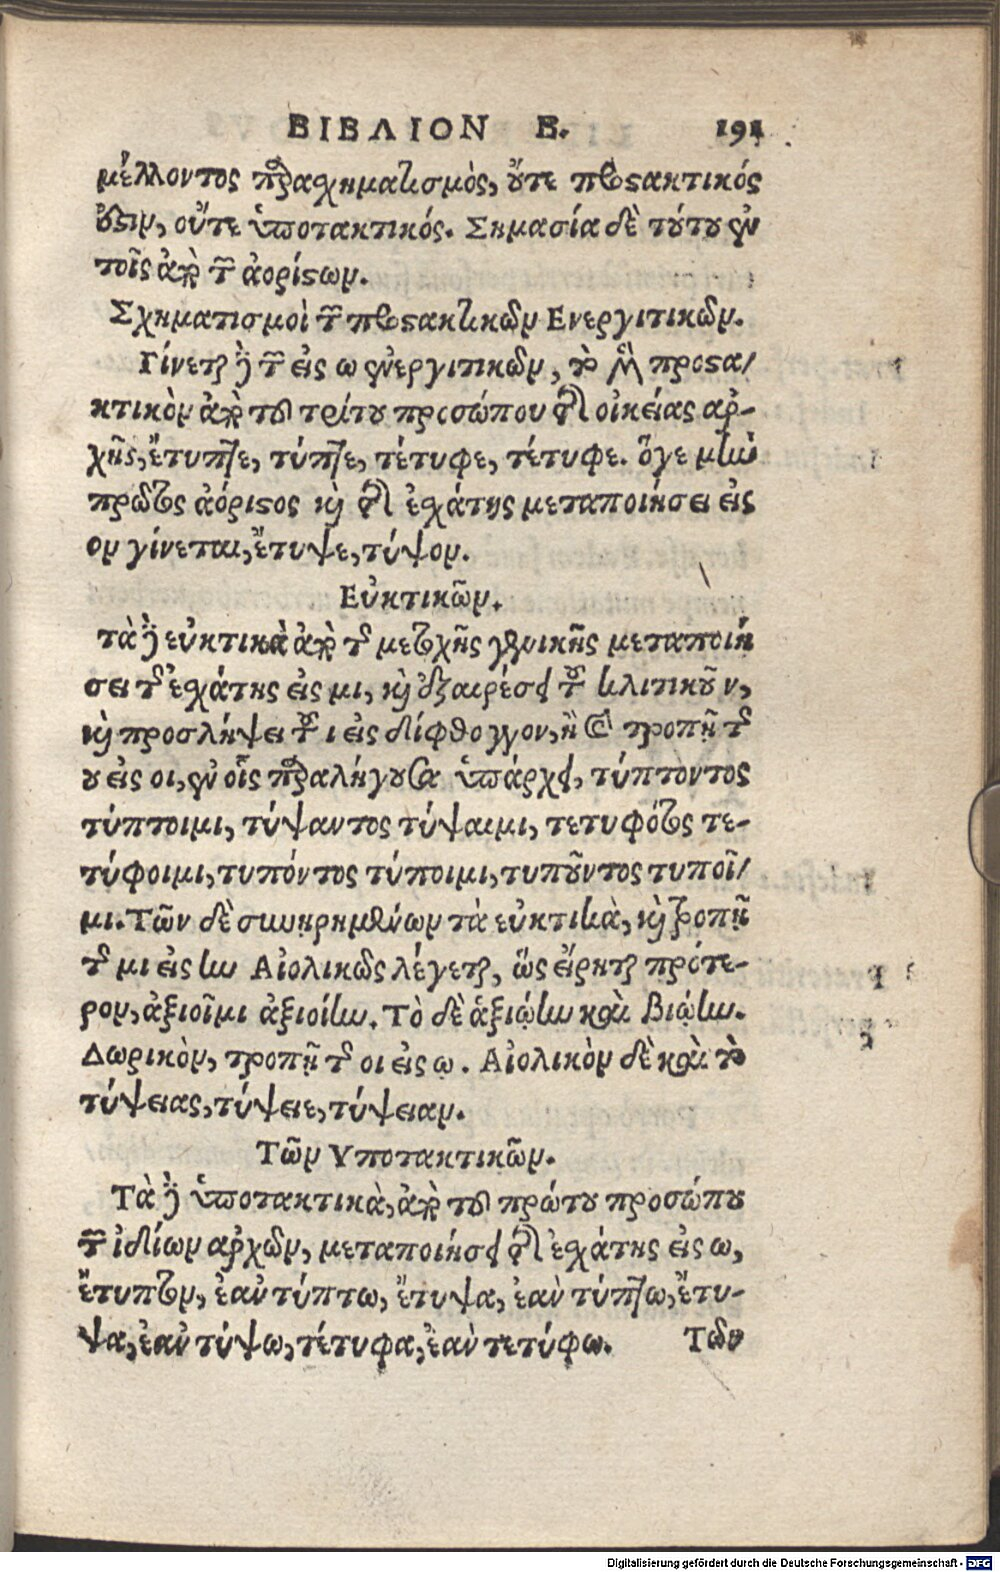 ΒΙΒΛΙΟΝ Β. 191
μέλλοντος παρασχηματισμὸς, οὔτε προστακτικός
ὅστιν, οὔτε ὑποτακτικός. Σημασία δὲ τούτου ἐν
τοῖς ἀπὸ τῶν ἀορίστων.
Σχηματισμοὶ τῶν προστακτικῶν Ενεργιτικῶν.
Γίνεται δὲ τῶν εἰς ω ἐνεργιτικῶν, τὸ μὲν προστα/
κτικὸν ἀπὸ τοῦ τρίτου προσώπου τῆς οἰκείας αρ-
χῆς, ἔτυπτε, τύπτε, τέτυφε, τέτυφε. ὅγε μὴν
πρῶτος ἀόριστος καὶ τῆς ἐσχάτης μεταποιήσει εἰς
ον γίνεται, ἔτυψε, τύψον.
Εὐκτικῶν.
τὰ δὲ εὐκτικὰ ἀπὸ τῆς μετοχῆς γενικῆς μεταποιή
σει τῆς ἐσχάτης εἰς μι, καὶ ἐξαιρέσει τοῦ κλιτικοῦ ν,
καὶ προσλήψει τοῦ ι εἰς δίφθογγον, ἢ καὶ τροπῇ τῆς
ου εἰς οι, ἐν οἷς παραλήγουσα ὑπάρχει, τύπτοντος
τύπτοιμι, τύψαντος τύψαιμι, τετυφότος τε-
τύφοιμι, τυπόντος τύποιμι, τυποῦντος τυποῖ/
μι. Τῶν δὲ συνῃρημένων τὰ εὐκτικὰ, καὶ τροπῇ
τῆς μι εἰς ην Αἰολικῶς λέγεται, ὥς εἴρηται πρότε-
ρον, ἀξιοῖμι ἀξιοίην. Τὸ δὲ ἀξιῴην καὶ Βιῴην.
Δωρικὸν, τροπῇ τῆς οι εἰς ω. Αἰολικὸν δὲ καὶ τὸ
τύψειας, τύψειε, τύψειαν.
Τῶν Υποτακτικῶν.
Τὰ δὲ ὑποτακτικὰ, ἀπὸ τοῦ πρώτου προσώπου
τῶν ἰδίων αρχῶν, μεταποιήσει τῆς ἐσχάτης εἰς ω,
ἔτυπτον, ἐαν τύπτω, ἔτυψα, ἐαν τύπτω, ἔτυ-
ψα, ἐαν τύψω, τέτυφα, ἐαν τετύφω. Τῶν
Digitalisierung gefördert durch die Deutsche Forschungsgemeinschaft - DFG